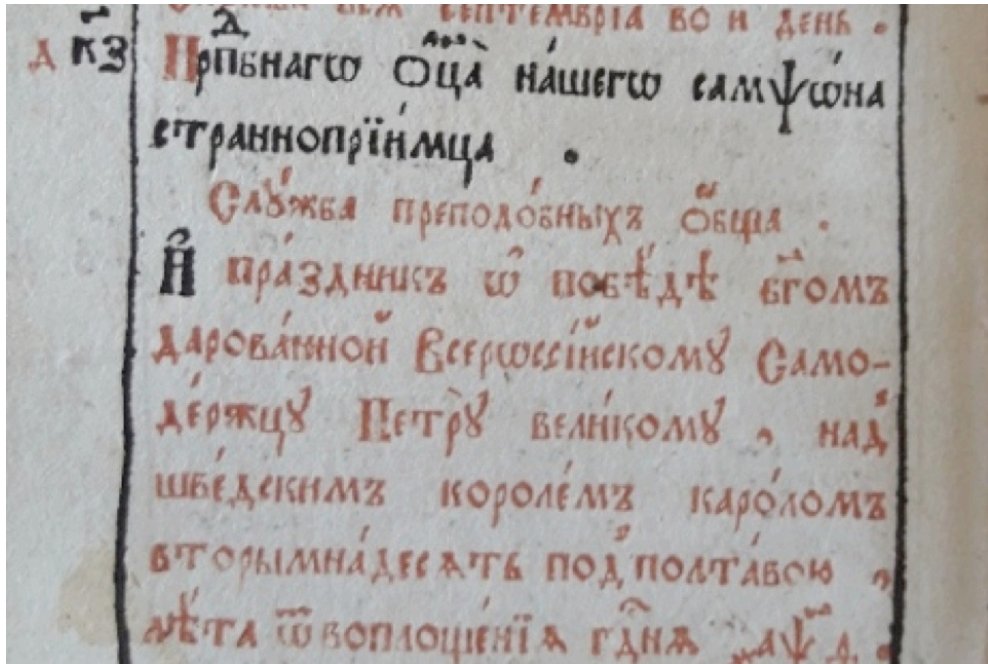 сєптємврїа во и҃ дєнь .
д к҃з Прпⷣбнагѡ ѻ҆ц҃а̀ на́шєгѡ самѱѡ́на
страннопрїи́мца .
Слꙋ́жба прєподо́бныхъ ѻ҆́бщаѧ .
И҆ пра́здникъ ѡ҆ побѣ́дѣ бг҃омъ
дарова́нной Всєрѡссі́йскомꙋ Само-
дє́ржцꙋ Пєтрꙋ̀ вєли́комꙋ , над̾
швє́дскимъ королє́мъ каро́ломъ
вторымна́дєсѧть под̾ полта́вою ,
лѣ́та ѿ воплощє́нїѧ гдⷭ҇нѧ ҂аѱ҃д .